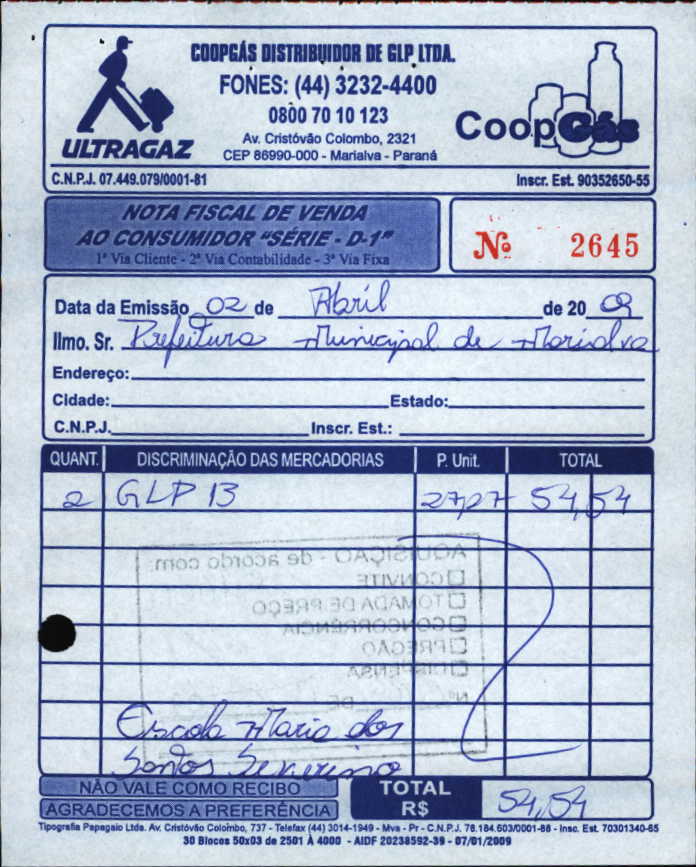 COOPGÁS DISTRIBUIDOR DE GLP LTDA.
FONES: (44) 3232-4400
0800 70 10 123
Av. Cristóvão Colombo, 2321
CEP 86990-000 - Marialva - Paraná
ULTRAGAZ
CoopGás
C.N.P.J. 07.449.079/0001-81
Inscr. Est. 90352650-55
NOTA FISCAL DE VENDA
AO CONSUMIDOR "SÉRIE - D-1"
1ª Via Cliente - 2ª Via Contabilidade - 3ª Via Fixa
Nº 2645
Data da Emissão 02 de Abril de 20 09
Ilmo. Sr. Prefeitura Municipal de Marialva
Endereço:
Cidade: Estado:
C.N.P.J. Inscr. Est.:
QUANT. DISCRIMINAÇÃO DAS MERCADORIAS P. Unit. TOTAL
2 GLP 13 27,27 54,54
AQUISIÇÃO - de acordo com:
CONVITE
TOMADA DE PREÇO
CONCORRÊNCIA
PREGÃO
DISPENSA
Nº DE
Escola Maria dos
Santos Severino
NÃO VALE COMO RECIBO
AGRADECEMOS A PREFERÊNCIA
TOTAL
R$ 54,54
Tipografia Papagaio Ltda. Av. Cristóvão Colombo, 737 - Telefax (44) 3014-1949 - Mva - Pr - C.N.P.J. 76.184.603/0001-88 - Insc. Est. 70301340-65
30 Blocos 50x03 de 2501 À 4000 - AIDF 20238592-39 - 07/01/2009